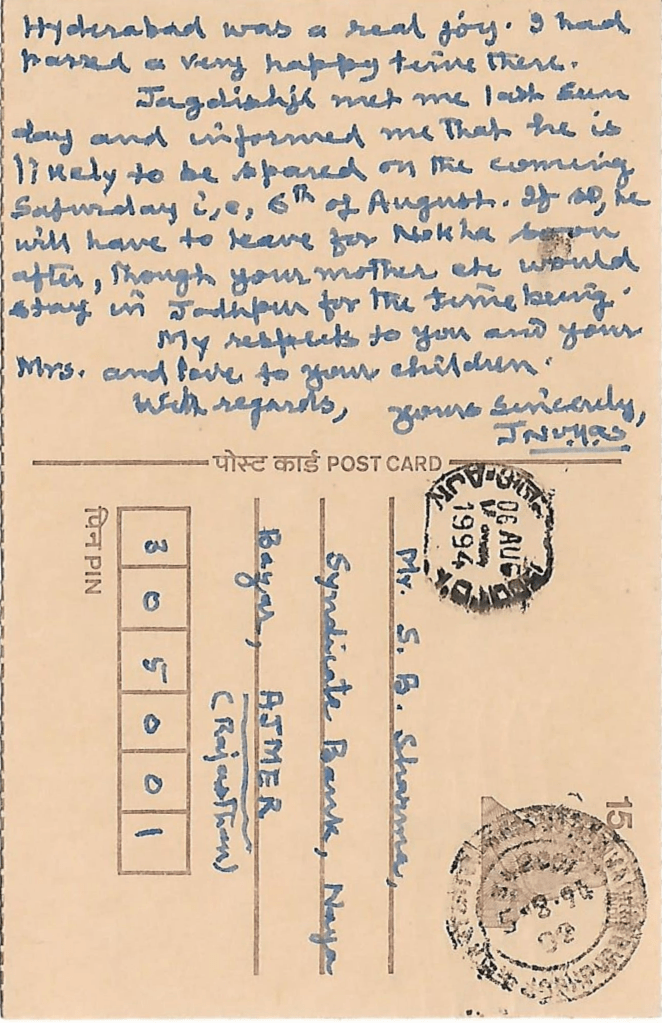 Hyderabad was a real joy. I had
passed a very happy time there.
Jagdishji met me last Sun
day and informed me that he is
likely to be spared on the coming
Saturday i.e. 6th of August. If so, he
will have to leave for Nokha soon
after, though your mother etc would
stay in Jodhpur for the time being.
My respects to you and your
Mrs. and love to your children.
With regards, yours sincerely,
पोस्ट कार्ड POST CARD
06 AUG
1994
Mr. S. B. Sharma,
Syndicate Bank, Naya
Bazar, AJMER
(Rajasthan)
पिन PIN
3 0 5 0 0 1
15